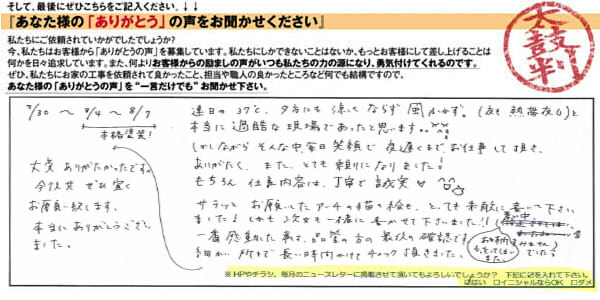 そして、最後にぜひこちらをご記入ください。↓↓
『あなた様の「ありがとう」の声をお聞かせください』
私たちにご依頼されていかがでしたでしょうか?
今、私たちはお客様から「ありがとうの声」を募集しています。私たちにしかできないことはないか、もっとお客様にして差し上げることは
何かを日々追求しています。また、何よりお客様からの励ましの声がいつも私たちの力の源になり、勇気付けてくれるのです。
ぜひ、私たちにお家の工事を依頼されて良かったこと、担当や職人の良かったところなど何でも結構ですので、
あなた様の「ありがとうの声」を"一言だけでも"お聞かせ下さい。
太鼓判
7/30 ~ 8/4 ~ 8/7
本格塗装!
大変 ありがたかったです。
今後共 ぜひ宜く
お願い致します。
本当にありがとうござい
ました。
連日の37℃、夕方にも涼しくならず 風ふかず。(夜も熱帯夜)と
本当に過酷な現場であったと思います。
しかしながら そんな中、毎日 笑顔で 夜遅くまで、お仕事して頂き、
ありがたく、また、とても頼りになりました!
もちろん 仕事内容は、丁寧で 誠実
サラッと お願いしたアーチの描き絵も、とっても素敵に書いて下さい
ました! しかも次女も一緒に書かせて下さいました!!
一番感動した事は、品質の方の最後の確認です
細かい所まで 長い時間かけて チェック頂きました。
※HPやチラシ、毎月のニュースレターに掲載させて頂いてもよろしいでしょうか? 下記に☑を入れて下さい。
☑はい ロイニシャルならOK ロダメ